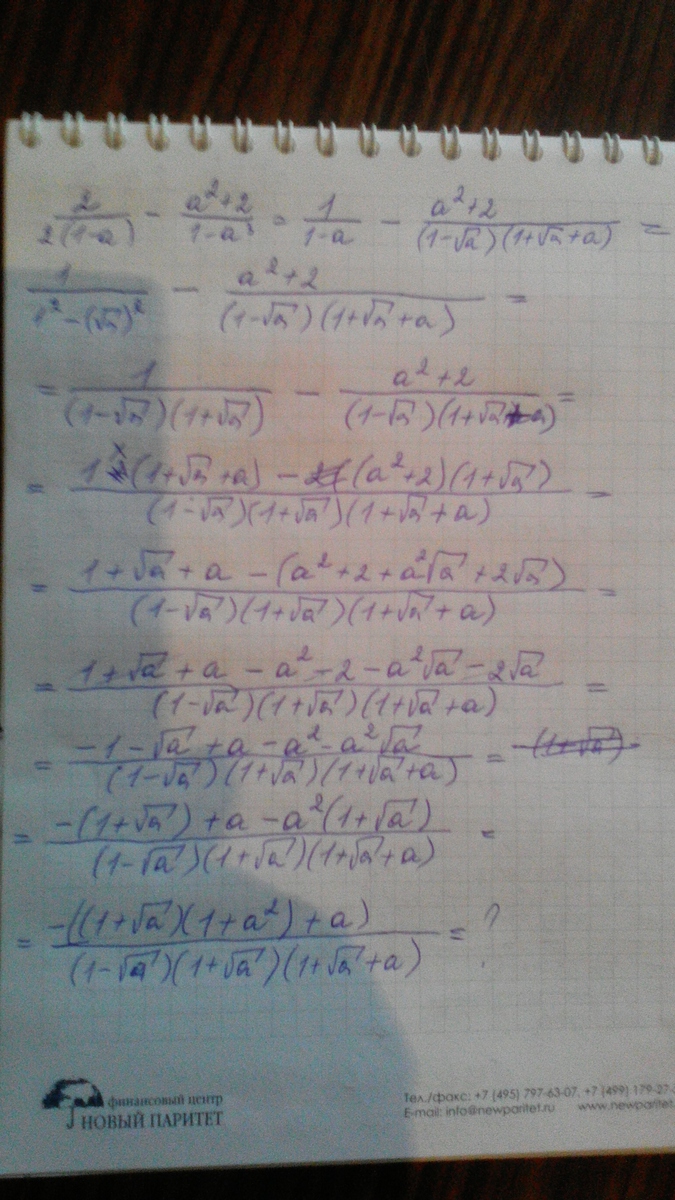 2/(2(1-a)) - (a²+2)/(1-a³) = 1/(1-a) - (a²+2)/((1-√a)(1+√a+a)) =
1/(1²-(√a)²) - (a²+2)/((1-√a)(1+√a+a)) =
= 1/((1-√a)(1+√a)) - (a²+2)/((1-√a)(1+√a+a)) =
= (1×(1+√a+a) - (a²+2)(1+√a))/((1-√a)(1+√a)(1+√a+a)) =
= (1+√a+a - (a²+2+a²√a+2√a))/((1-√a)(1+√a)(1+√a+a)) =
= (1+√a+a-a²-2-a²√a-2√a)/((1-√a)(1+√a)(1+√a+a)) =
= (-1-√a+a-a²-a²√a)/((1-√a)(1+√a)(1+√a+a)) = -(1+√a)
= (-(1+√a)+a-a²(1+√a))/((1-√a)(1+√a)(1+√a+a)) =
= (-((1+√a)(1+a²)+a))/((1-√a)(1+√a)(1+√a+a)) = ?
финансовый центр
НОВЫЙ ПАРИТЕТ
Тел./факс: +7 (495) 797-63-07, +7 (499) 179-27-
E-mail: info@newparitet.ru www.newparitet.